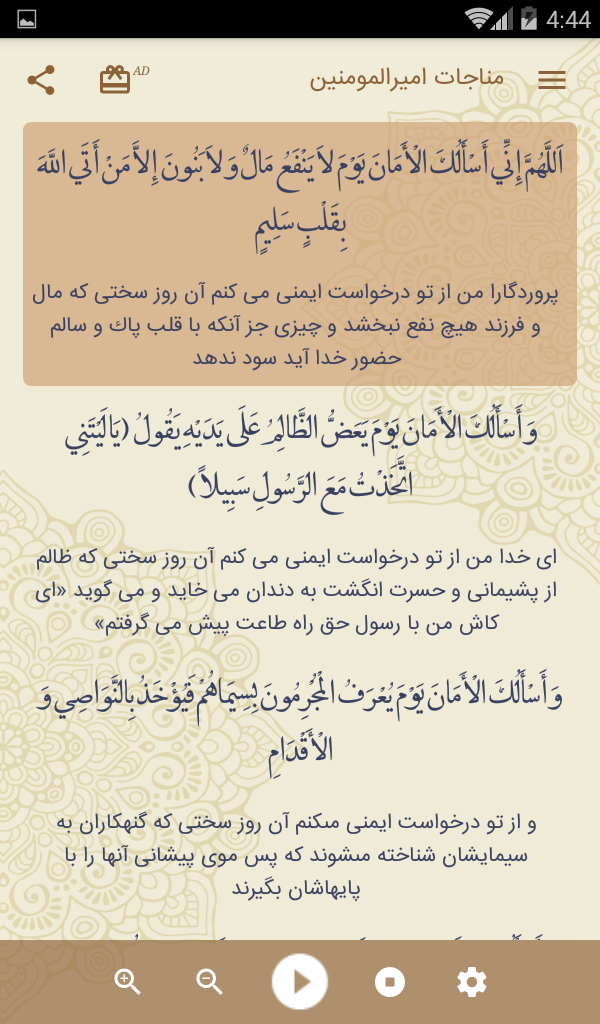 4:44
مناجات امیرالمومنین
AD
اَللَّهُمَّ إِنِّي أَسْأَلُكَ الْأَمَانَ يَوْمَ لاَ يَنْفَعُ مَالٌ وَ لاَ بَنُونَ إِلاَّ مَنْ أَتَى اللَّهَ
بِقَلْبٍ سَلِيمٍ
پروردگارا من از تو درخواست ایمنی می کنم آن روز سختی که مال
و فرزند هیچ نفع نبخشد و چیزی جز آنکه با قلب پاك و سالم
حضور خدا آید سود ندهد
وَ أَسْأَلُكَ الْأَمَانَ يَوْمَ يَعَضُّ الظَّالِمُ عَلَى يَدَيْهِ يَقُولُ (يَا لَيْتَنِي
اتَّخَذْتُ مَعَ الرَّسُولِ سَبِيلاً)
ای خدا من از تو درخواست ایمنی می کنم آن روز سختی که ظالم
از پشیمانی و حسرت انگشت به دندان می خاید و می گوید «ای
کاش من با رسول حق راه طاعت پیش می گرفتم»
وَ أَسْأَلُكَ الْأَمَانَ يَوْمَ يُعْرَفُ الْمُجْرِمُونَ بِسِيمَاهُمْ فَيُؤْخَذُ بِالنَّوَاصِي وَ
الْأَقْدَامِ
و از تو درخواست ایمنی مىکنم آن روز سختی که گنهکاران به
سیمایشان شناخته مىشوند که پس موی پیشانی آنها را با
پایهاشان بگیرند